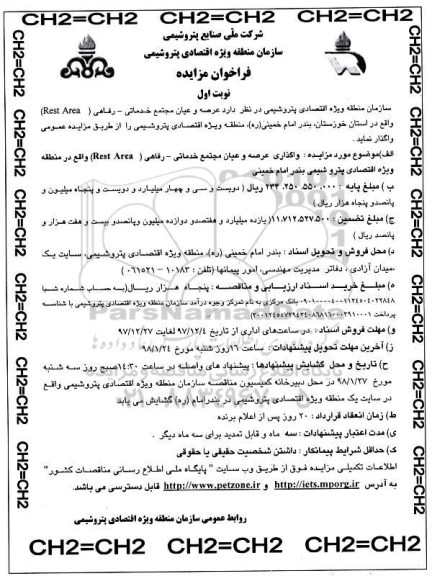 CH2=CH2 CH2=CH2 CH2=CH2 CH2=CH2
شرکت ملّی صنایع پتروشیمی
سازمان منطقه ویژه اقتصادی پتروشیمی
فراخوان مزایده
نوبت اول
سازمان منطقه ویژه اقتصادی پتروشیمی در نظر دارد عرصه و عیان مجتمع خدماتی - رفاهی ( Rest Area)
واقع در استان خوزستان، بندر امام خمینی(ره)، منطقه ویژه اقتصادی پتروشیمی را از طریق مزایده عمومی
واگذار نماید .
الف)موضوع مورد مزایده : واگذاری عرصه و عیان مجتمع خدماتی - رفاهی ( Rest Area) واقع در منطقه
ویژه اقتصادی پتروشیمی بندر امام خمینی
ب ) مبلغ پایه : ۲۳۴،۲۵۰،۵۵۰،۰۰۰ ریال ( دویست و سی و چهار میلیارد و دویست و پنجاه میلیون و
پانصدو پنجاه هزار ریال )
ج) مبلغ تضمین : ۱۱،۷۱۲،۵۲۷،۵۰۰( یازده میلیارد و هفتصدو دوازده میلیون وپانصدو بیست و هفت هزار و
پانصد ریال )
د) محل فروش و تحویل اسناد : بندر امام خمینی (ره)، منطقه ویژه اقتصادی پتروشیمی، سایت یک
،میدان آزادی ، دفاتر مدیریت مهندسی، امور پیمانها (تلفن : ۱۰۱۸۳ - ۰۶۱۵۲۱ )
ه) مبلغ خرید اسناد ارزیابی و مناقصه : پنجاه هزار ریال(به حساب شماره شبا
بانک مرکزی به نام تمرکز وجوه درآمد سازمان منطقه ویژه اقتصادی پتروشیمی با شناسه
پرداخت
و) مهلت فروش اسناد : در ساعت‌های اداری از تاریخ ۹۷/۱۲/۴ لغایت ۹۷/۱۲/۲۷
ز) آخرین مهلت تحویل پیشنهادات : ساعت ۱۶روز شنبه مورخ ۹۸/۱/۲۴
ح) تاریخ و محل گشایش پیشنهادها : پیشنهاد های واصله در ساعت ۱۴:۳۰صبح روز سه شنبه
مورخ ۹۸/۱/۲۷ در محل دبیرخانه کمیسیون مناقصه سازمان منطقه ویژه اقتصادی پتروشیمی واقع
در سایت یک منطقه ویژه اقتصادی پتروشیمی در بندرامام (ره) گشایش می یابد
ط) زمان انعقاد قرارداد : ۲۰ روز پس از اعلام برنده
ی) مدت اعتبار پیشنهادات : سه ماه و قابل تمدید برای سه ماه دیگر .
ک) حداقل شرایط پیمانکار : داشتن شخصیت حقیقی یا حقوقی
اطلاعات تکمیلی مزایده فوق از طریق وب سایت " پایگاه ملی اطلاع رسانی مناقصات کشور"
به آدرس http://iets.mporg.ir و http://www.petzone.ir قابل دسترسی می باشد.
روابط عمومی سازمان منطقه ویژه اقتصادی پتروشیمی
CH2=CH2 CH2=CH2 CH2=CH2 CH2=CH2